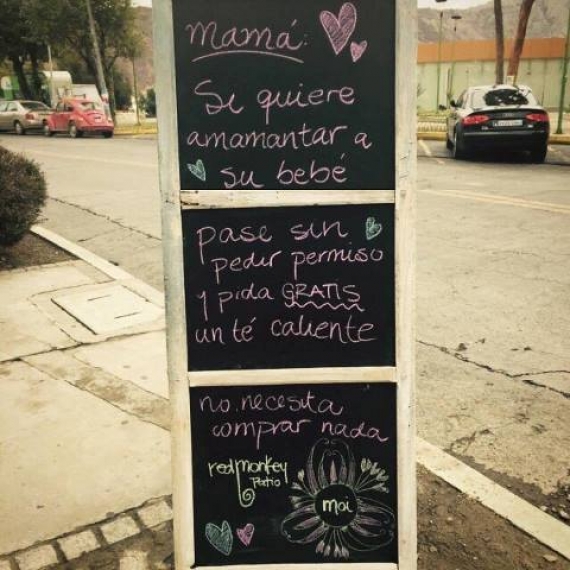 mamá:
Si quiere
amamantar a
su bebé
pase sin
pedir permiso
y pida GRATIS
un té caliente
no necesita
comprar nada
redmonkey
Patio
moi